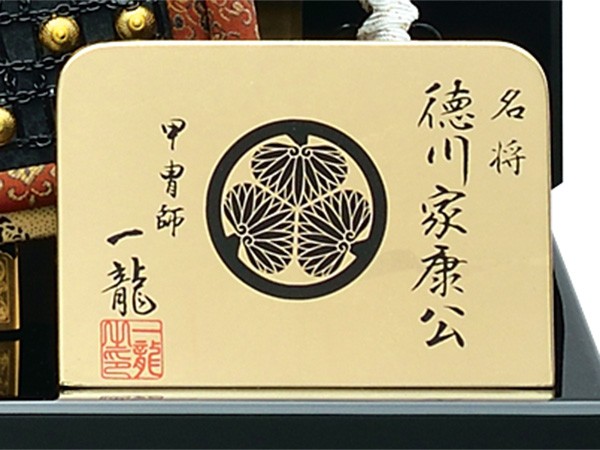 名将
徳川家康公
甲冑師
一龍
一龍之印